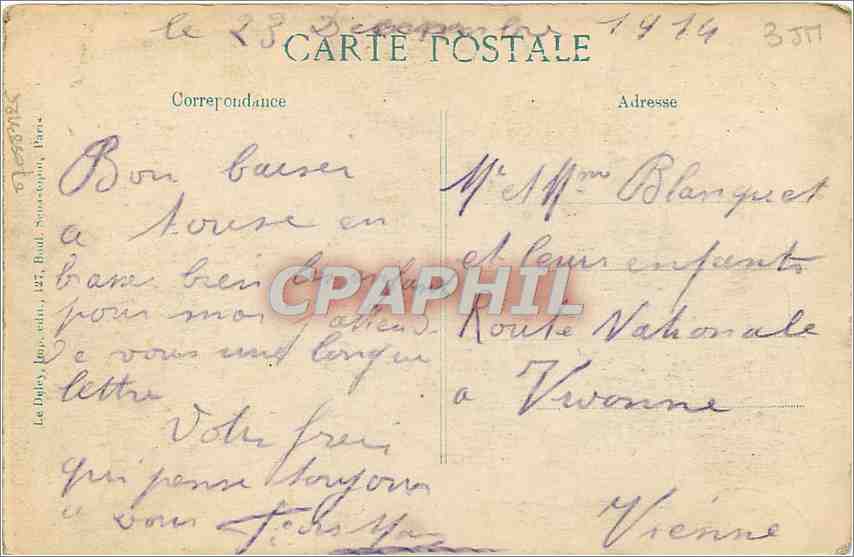 le 23 Decembre 1914
CARTE POSTALE
Correspondance
Adresse
Bon baiser
a tous en
bien les enfans
pour moi j'attend
de vous une longue
lettre
Votre frere
qui pense toujours
a vous
Mr et Mme Blanquet
et leurs enfants
Route Nationale
a Vivonne
Vienne
Le Deley, Imp. édit., 127, Boul. Sébastopol, Paris
CPAPHIL